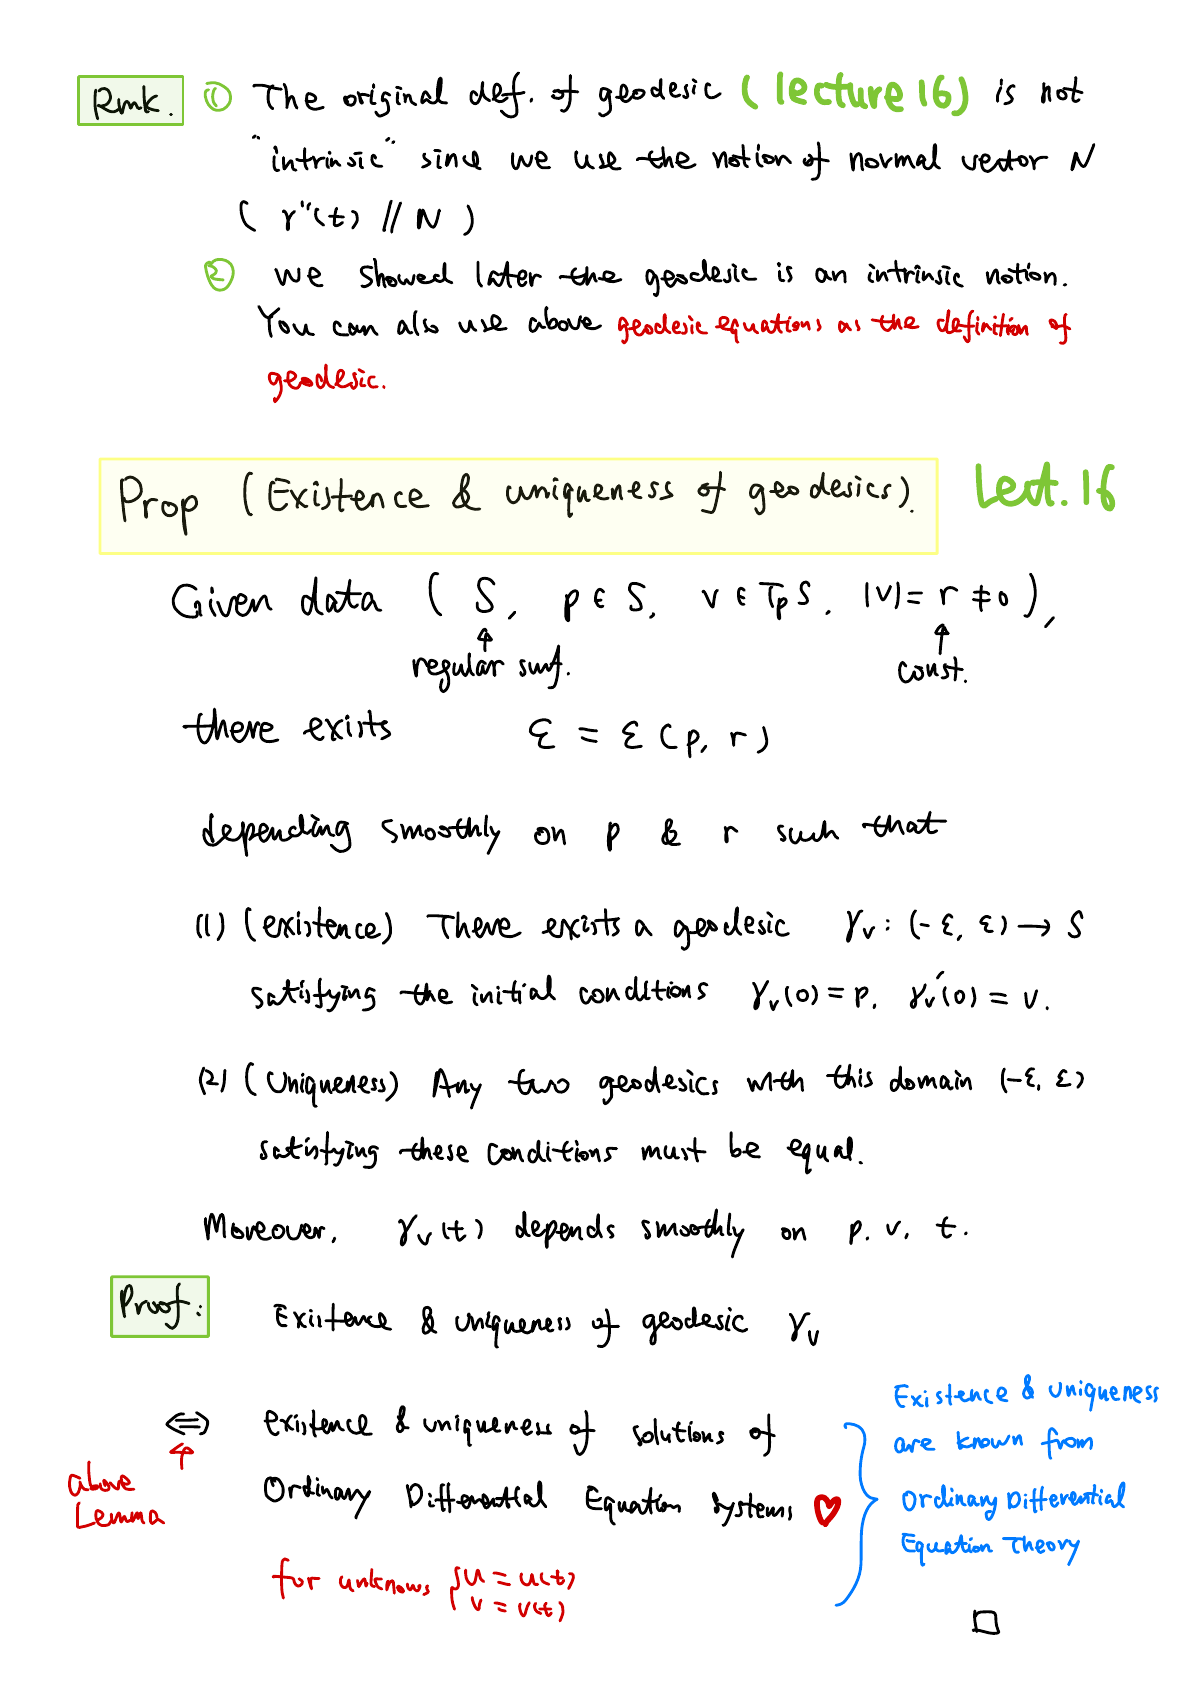 Rmk. ① The original def. of geodesic (lecture 16) is not
"intrinsic" since we use the notion of normal vector N
( γ''(t) // N )
② we showed later the geodesic is an intrinsic notion.
You can also use above geodesic equations as the definition of
geodesic.
Prop (Existence & uniqueness of geodesics). Lect. 16
Given data ( S, p ∈ S, v ∈ TpS, |v| = r ≠ 0 ),
↑ ↑
regular surf. const.
there exists ε = ε(p, r)
depending smoothly on p & r such that
(1) (existence) There exists a geodesic γv : (-ε, ε) → S
satisfying the initial conditions γv(0) = p, γv'(0) = v.
(2) (Uniqueness) Any two geodesics with this domain (-ε, ε)
satisfying these conditions must be equal.
Moreover, γv(t) depends smoothly on p, v, t.
Proof: Existence & uniqueness of geodesic γv
⇔ existence & uniqueness of solutions of
↑
above
Lemma
Ordinary Differential Equation Systems ♥
for unknows { u = u(t)
v = v(t)
Existence & uniqueness
are known from
Ordinary Differential
Equation Theory
□